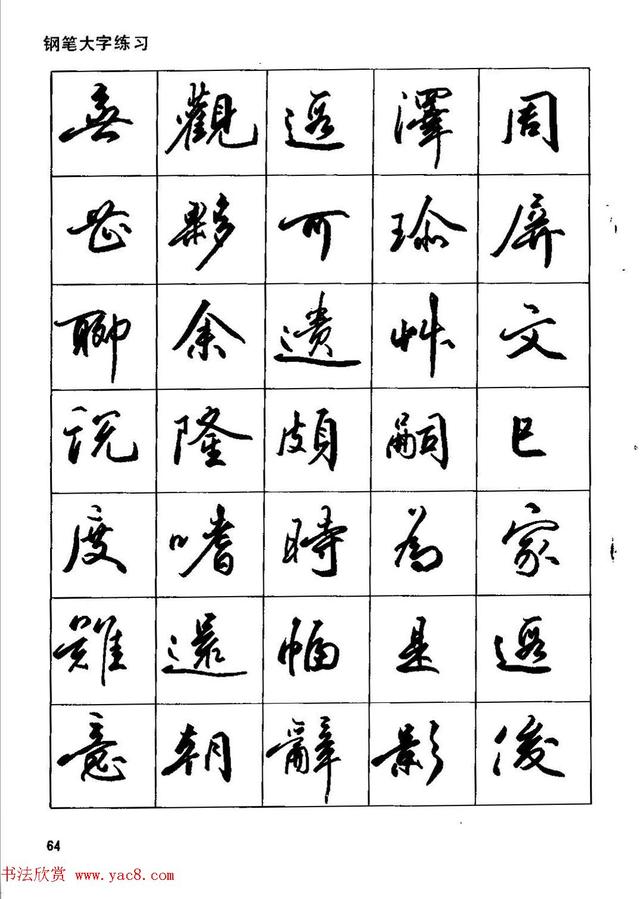 钢笔大字练习
無觀遐澤周
夥可瑜屏
聊余遺艸文
說隆頗嗣已
度嗜時為家
難還幅是遐
意朝辭影俊
64
书法欣赏 www.yac8.com